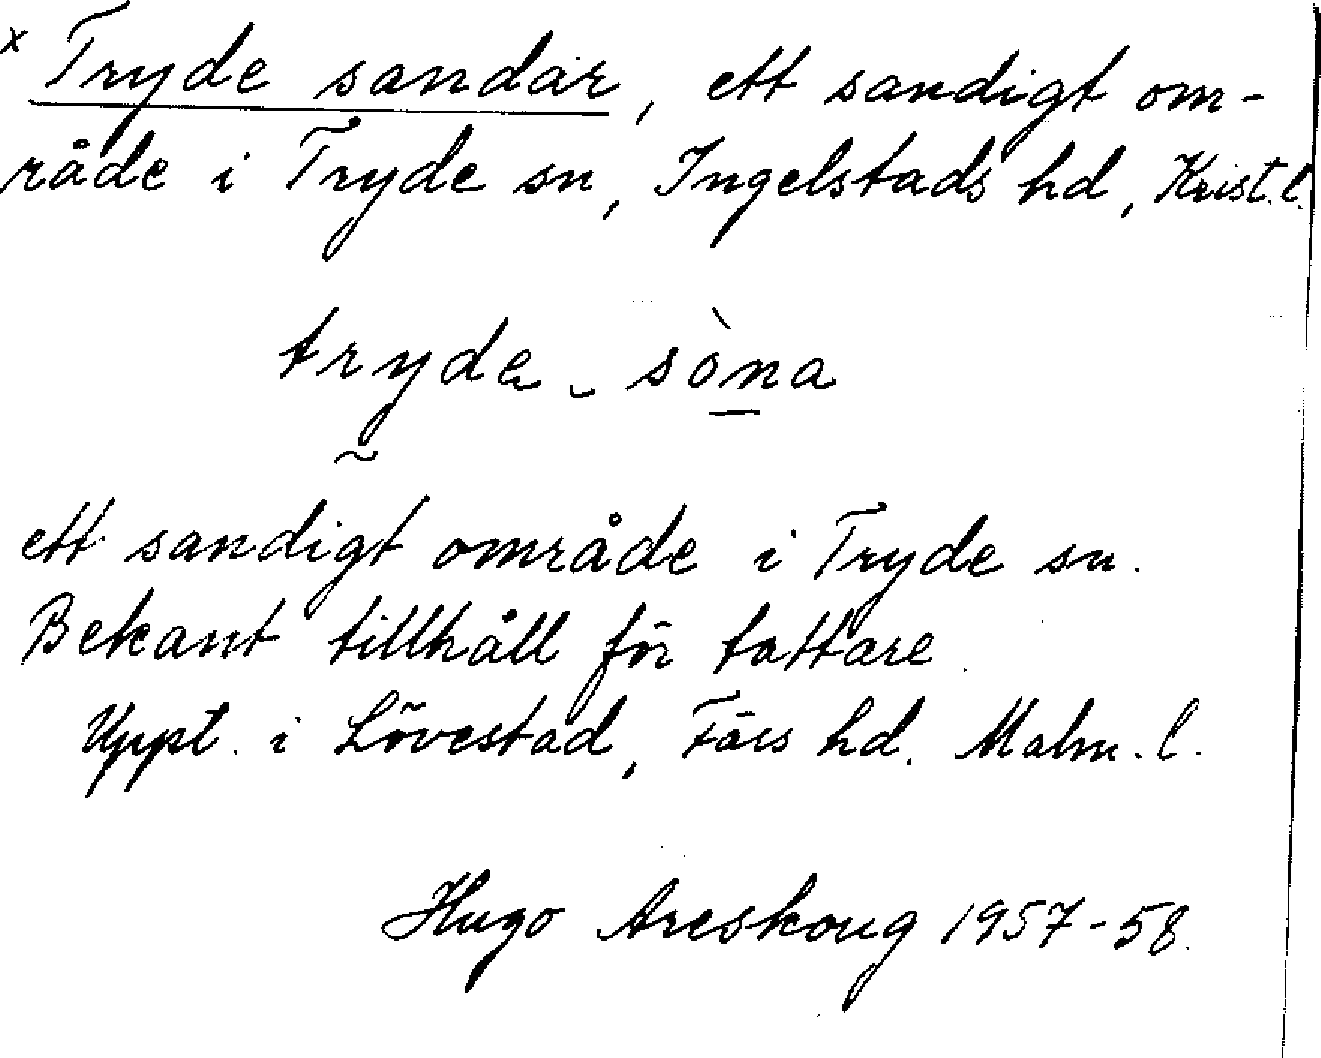 x Tryde sandar, ett sandigt om-
råde i Tryde sn, Ingelstads hd, Krist.l.
tryde - sòna
ett sandigt område i Tryde sn.
Bekant tillhåll för tattare.
Uppt. i Lövestad, Färs hd. Malm.l.
Hugo Areskoug 1957-58.